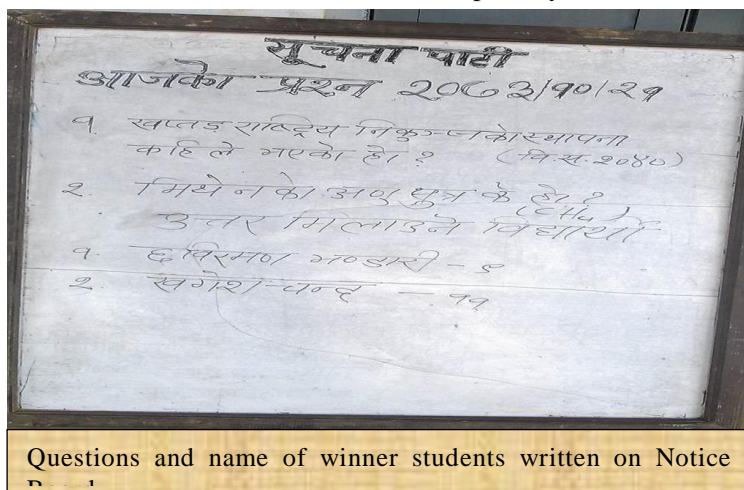 सूचना पाटी
आजको प्रश्न २०७३/१०/२१
१. खप्तड राष्ट्रिय निकुञ्जको स्थापना
कहिले भएको हो ? (वि.सं. २०४०)
२. मिथेनको अणु सुत्र के हो ?
(CH₄)
उत्तर मिलाउने विद्यार्थी
१ छविरमण भण्डारी - ९
२ खगेश चन्द - ११
Questions and name of winner students written on Notice